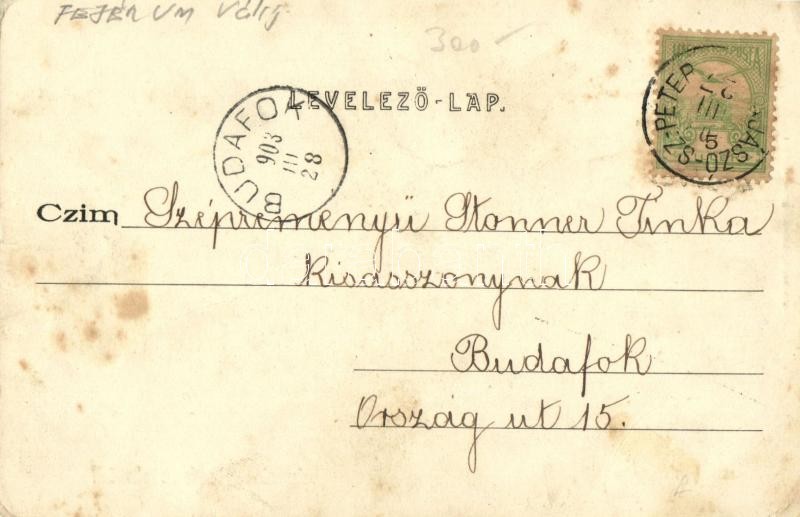 FEJÉR UM
300-
LEVELEZŐ-LAP.
BUDAFOK
903
III
28
JÁSZÓ-SZ-PÉTER
Czim Szépreményű Stonner Tinka
kisasszonynak
Budafok
Ország ut 15.